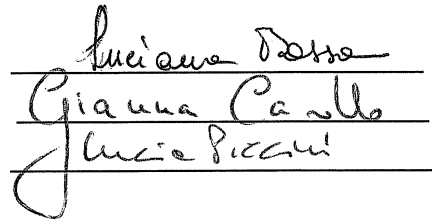 Luciana Bossa
Gianna Carollo
Lucia Piccini